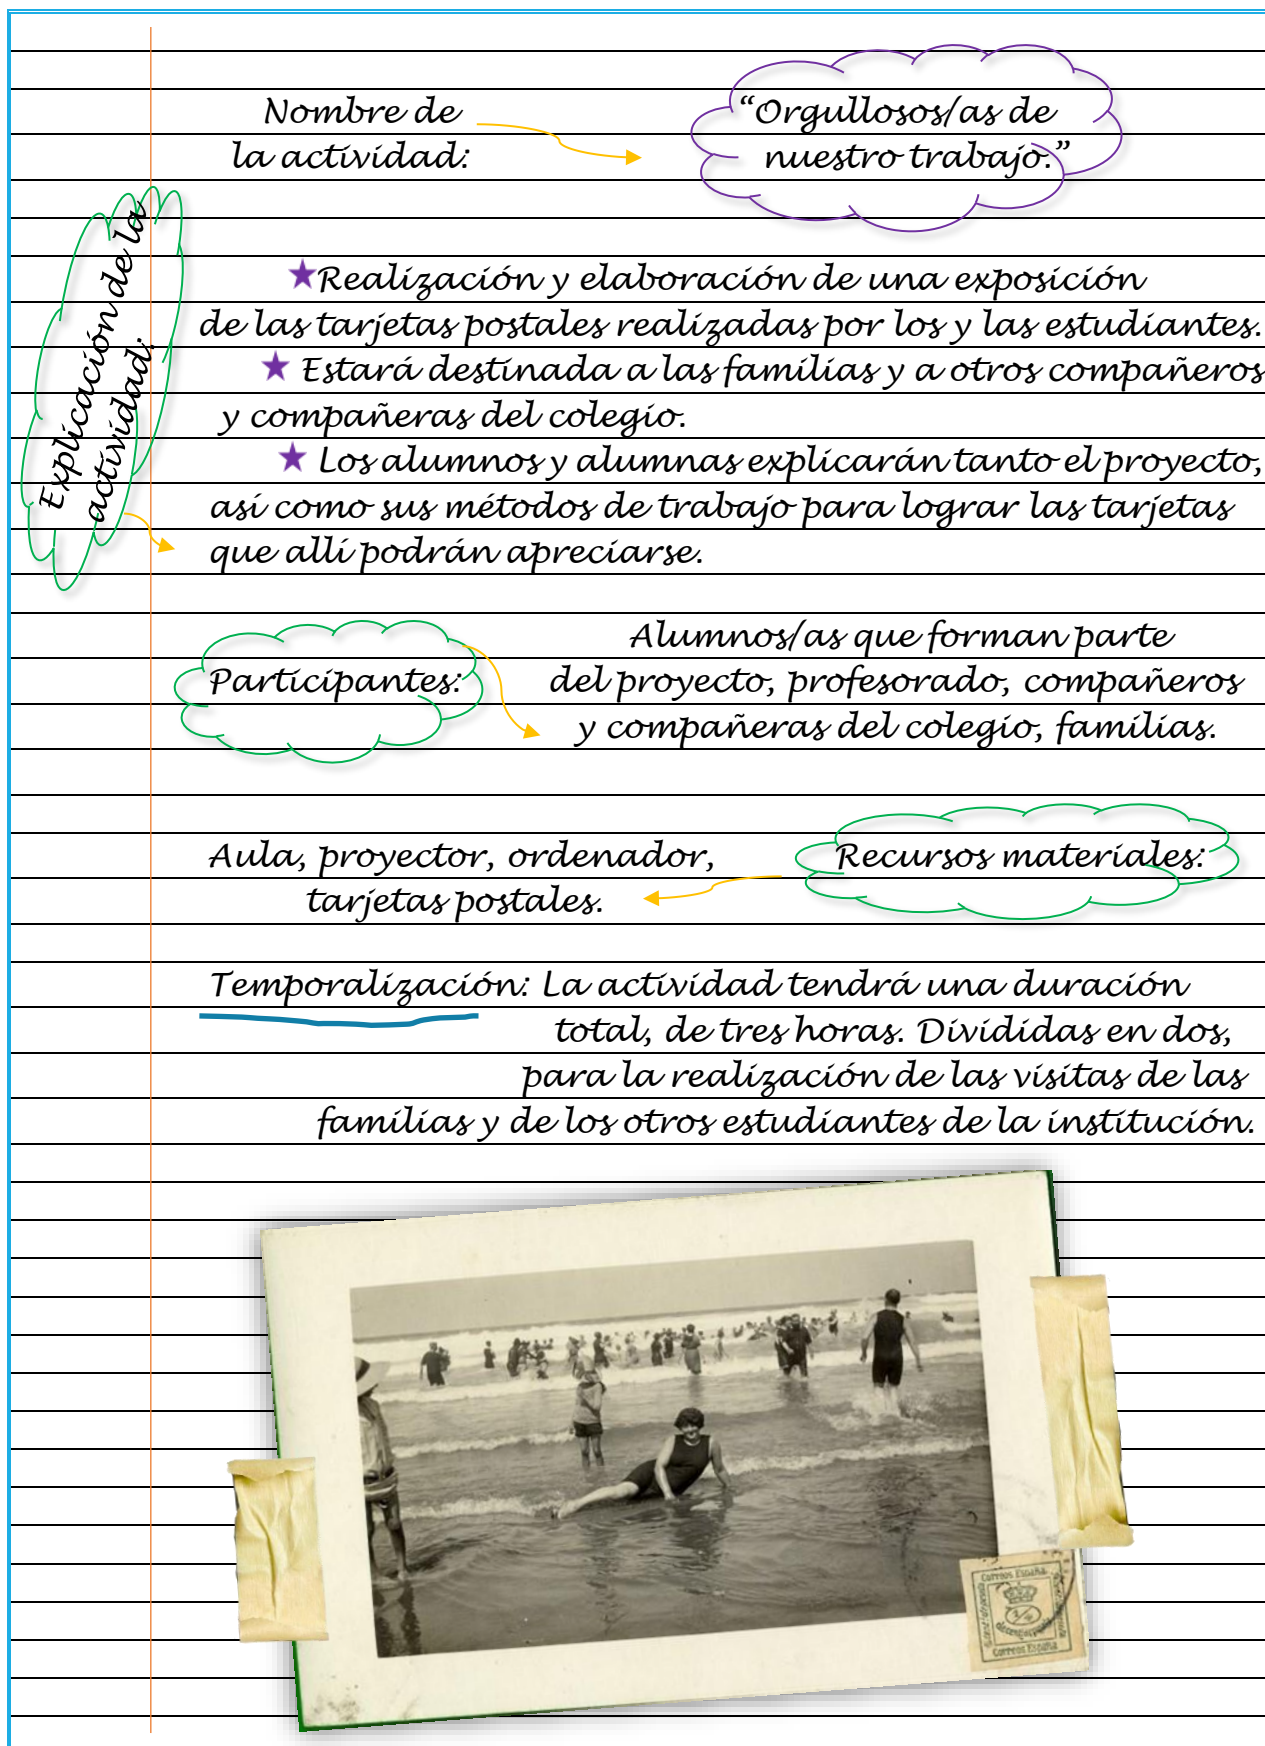 Nombre de
la actividad:
“Orgullosos/as de
nuestro trabajo.”
Explicación de la
actividad:
Realización y elaboración de una exposición
de las tarjetas postales realizadas por los y las estudiantes.
Estará destinada a las familias y a otros compañeros
y compañeras del colegio.
Los alumnos y alumnas explicarán tanto el proyecto,
así como sus métodos de trabajo para lograr las tarjetas
que allí podrán apreciarse.
Participantes:
Alumnos/as que forman parte
del proyecto, profesorado, compañeros
y compañeras del colegio, familias.
Recursos materiales:
Aula, proyector, ordenador,
tarjetas postales.
Temporalización: La actividad tendrá una duración
total, de tres horas. Divididas en dos,
para la realización de las visitas de las
familias y de los otros estudiantes de la institución.
Correos España
1/4
Correos España